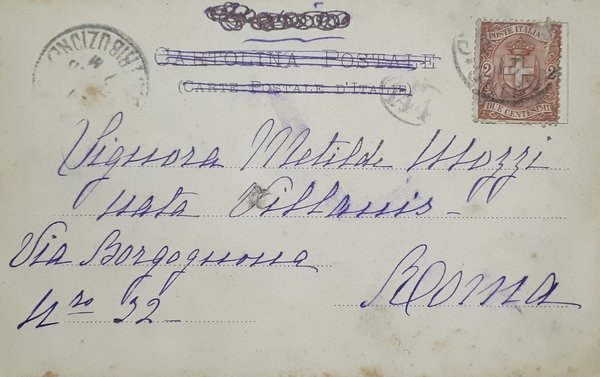 CARTOLINA POSTALE
CARTE POSTALE D'ITALIE
POSTE ITALIANE
2 2
DUE CENTESIMI
DISTRIBUZIONE
144
Signora Metilde Mozzi
nata Villanis
Via Borgognona
Nro 32
Roma